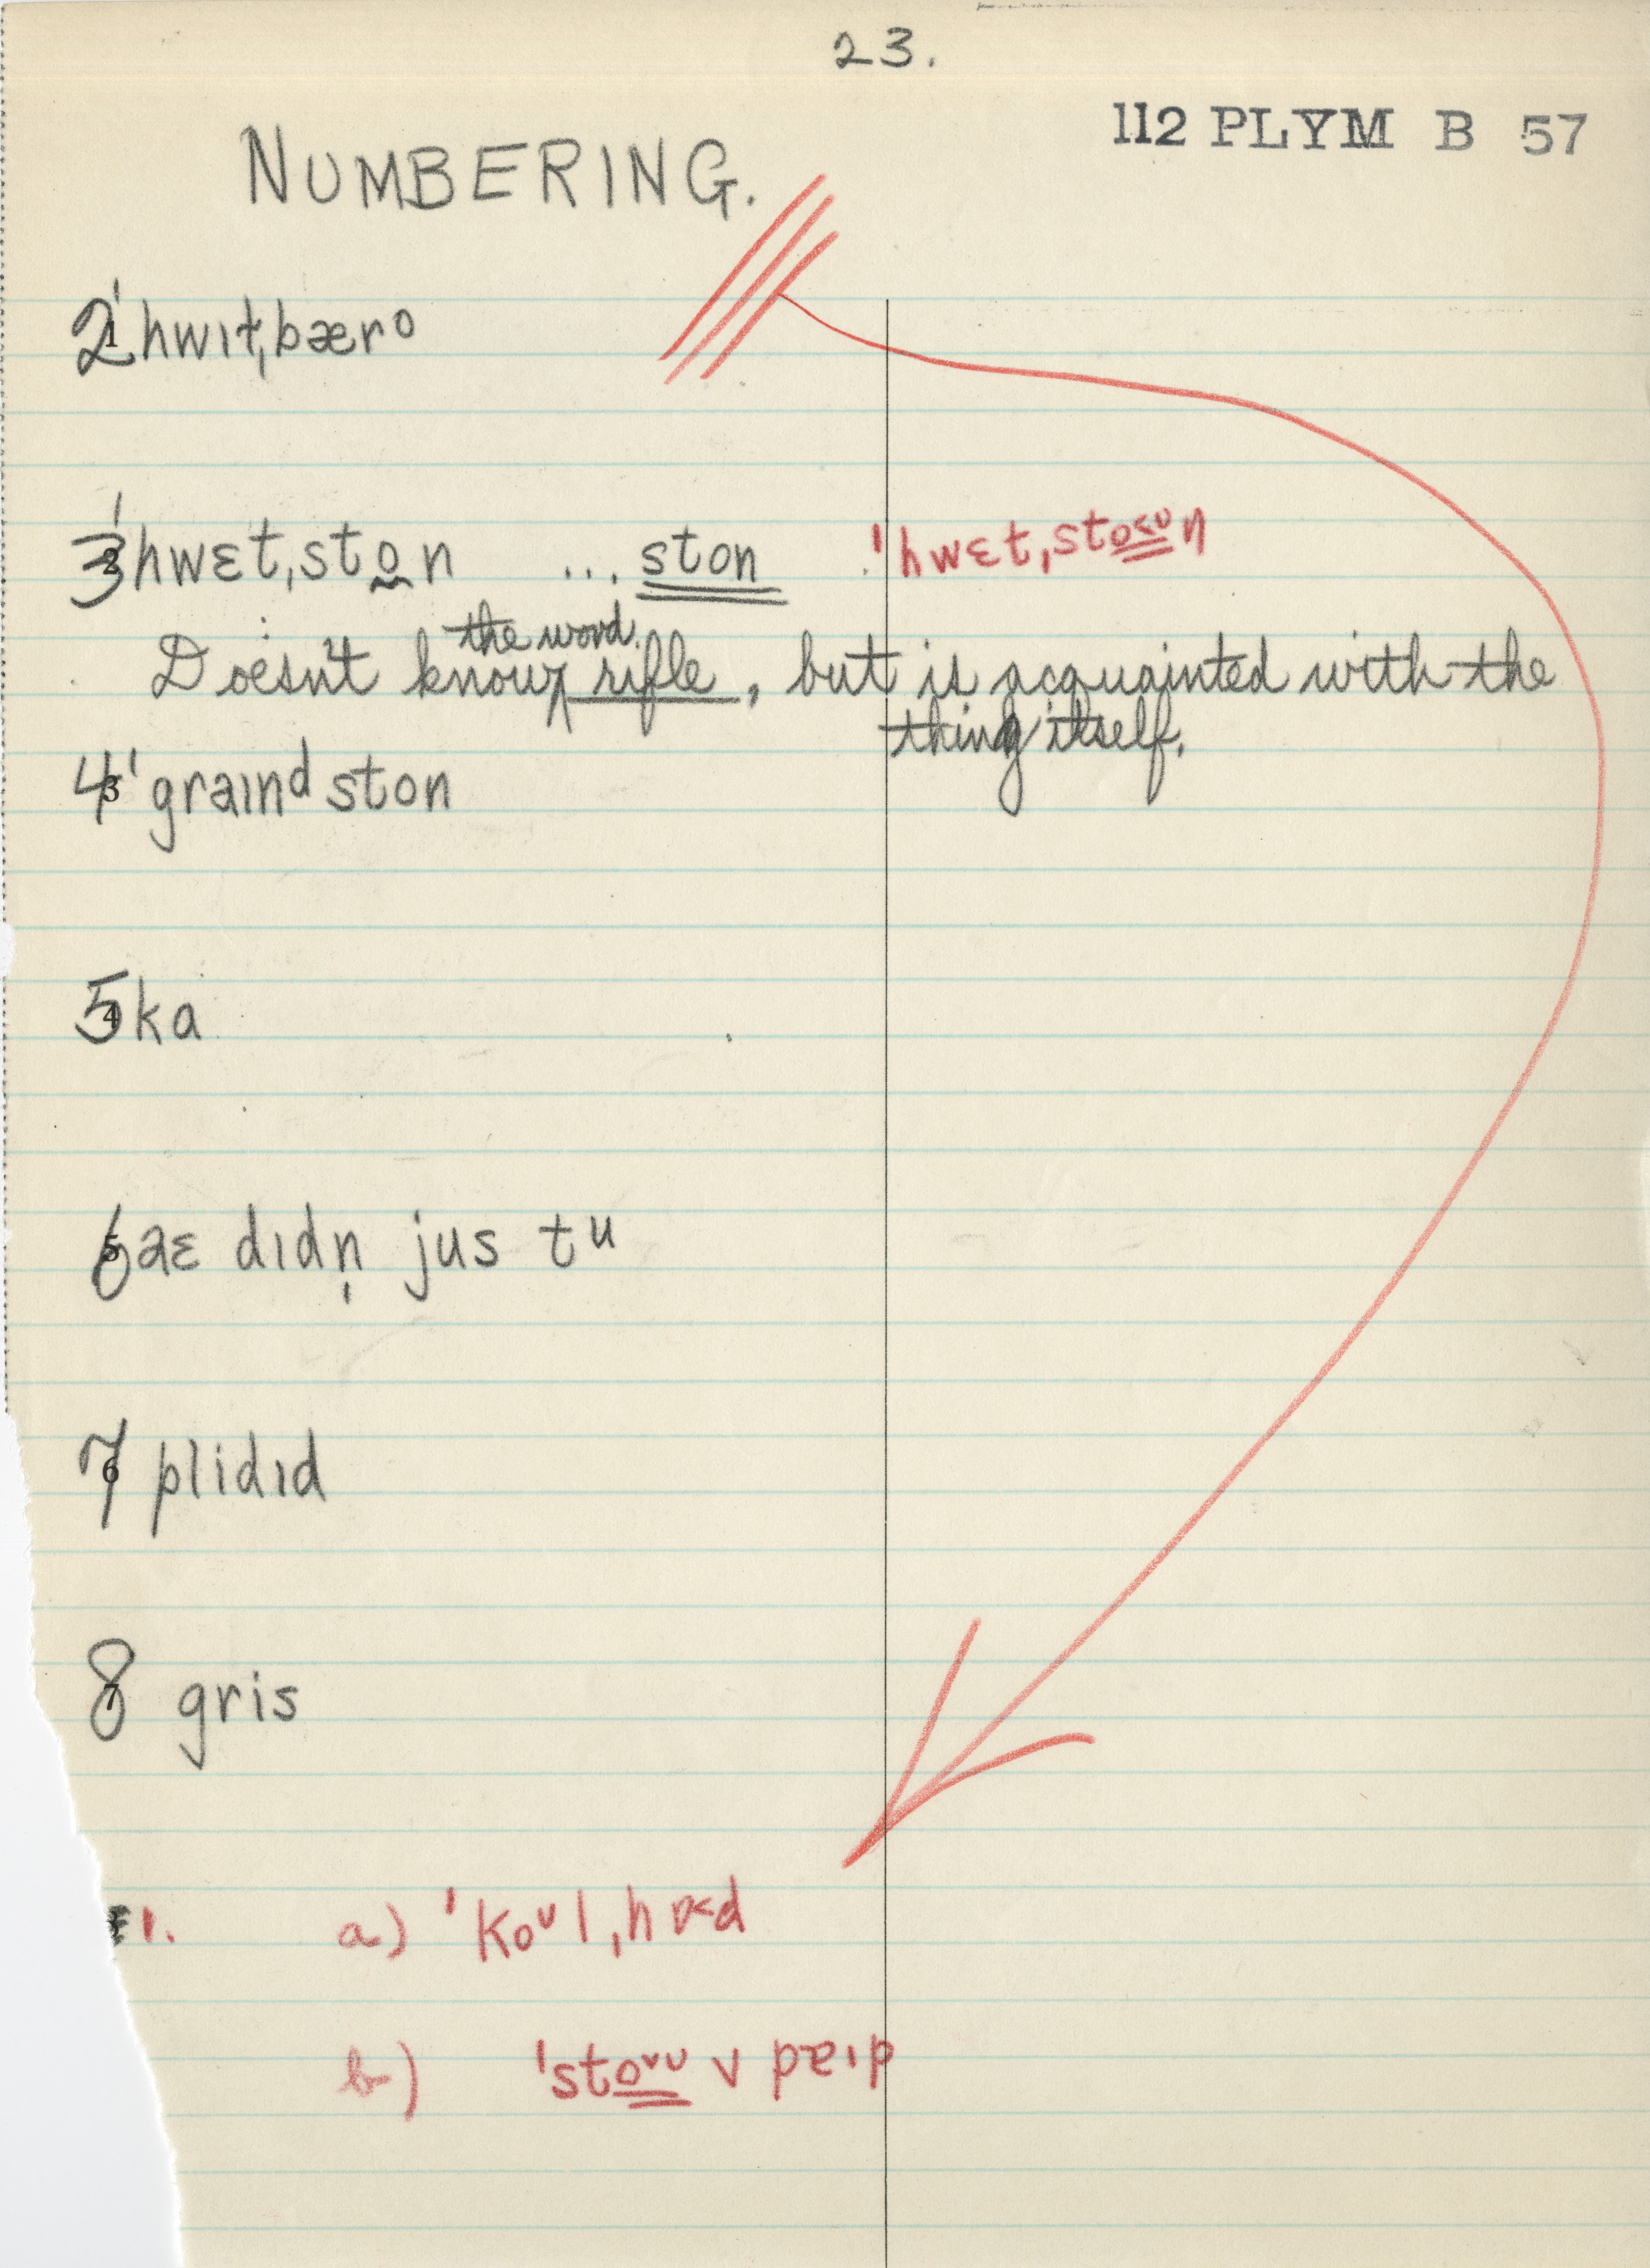 23.
112 PLYM B 57
NUMBERING.
2 1 ˈhwɪt,bæro
3 2 ˈhwɛt,ston ... ston ˈhwɛt,sto<ᴜn
Doesn't know the word rifle, but is acquainted with the
thing itself.
4 3 ˈgraɪndston
5 4 ka
6 5 aɛ dɪdn̩ jus tu
7 6 plidɪd
8 7 gris
1. a) ˈkoᴜl,hɒ<d
b) ˈsto˅ᴜ v paɪp